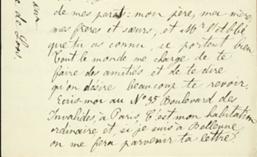 de mes parats : mon père, ma mère,
mes frères et sœurs, et Mr l'abbé
que tu as connu, se portent bien.
Tout le monde me charge de te
faire des amitiés et de te dire
qu'on désire beaucoup te revoir.
Écris-moi au No 35 Boulevard des
Invalides, à Paris, C'est mon habitation
ordinaire et, si je suis à Bollène
on me fera parvenir ta lettre.